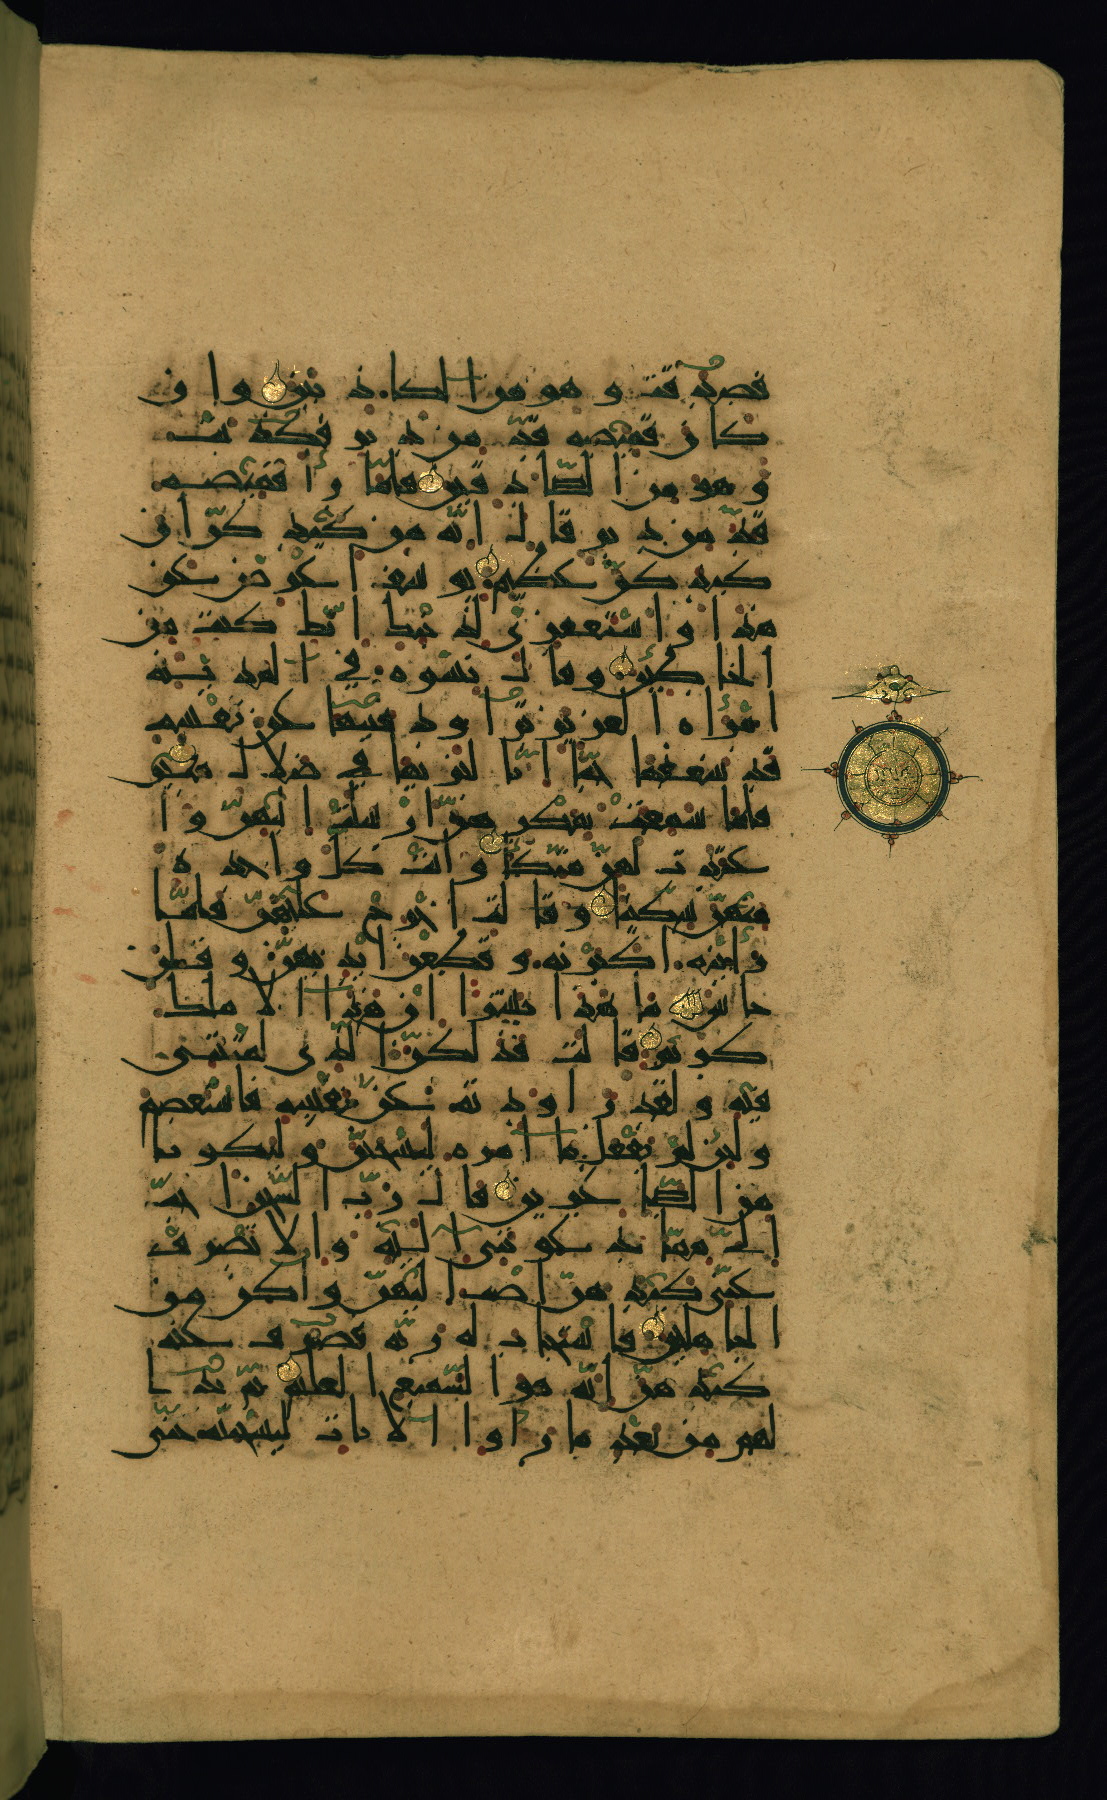 فصدقت وهو من الكاذبين وان
كان قميصه قد من دبر فكذبت
وهو من الصادقين فلما رءا قميصه
قد من دبر قال انه من كيدكن ان
كيدكن عظيم يوسف اعرض عن
هذا واستغفري لذنبك انك كنت من
الخاطئين وقال نسوة في المدينة
امراة العزيز تراود فتيها عن نفسه
قد شغفها حبا انا لنريها في ضلال مبين
فلما سمعت بمكرهن ارسلت اليهن وا
عتدت لهن متكا واتت كل واحدة
منهن سكينا وقالت اخرج عليهن فلما
راينه اكبرنه وقطعن ايديهن وقلن
حاش لله ما هذا بشرا ان هذا الا ملك
كريم قالت فذلكن الذي لمتنني
فيه ولقد راودته عن نفسه فاستعصم
ولئن لم يفعل ما امره ليسجنن وليكونا
من الصاغرين قال رب السجن احب
الي مما يدعونني اليه والا تصرف
عني كيدهن اصب اليهن واكن من
الجاهلين فاستجاب له ربه فصرف عنه
كيدهن انه هو السميع العليم ثم بدا
لهم من بعد ما راوا الايات ليسجننه حتى